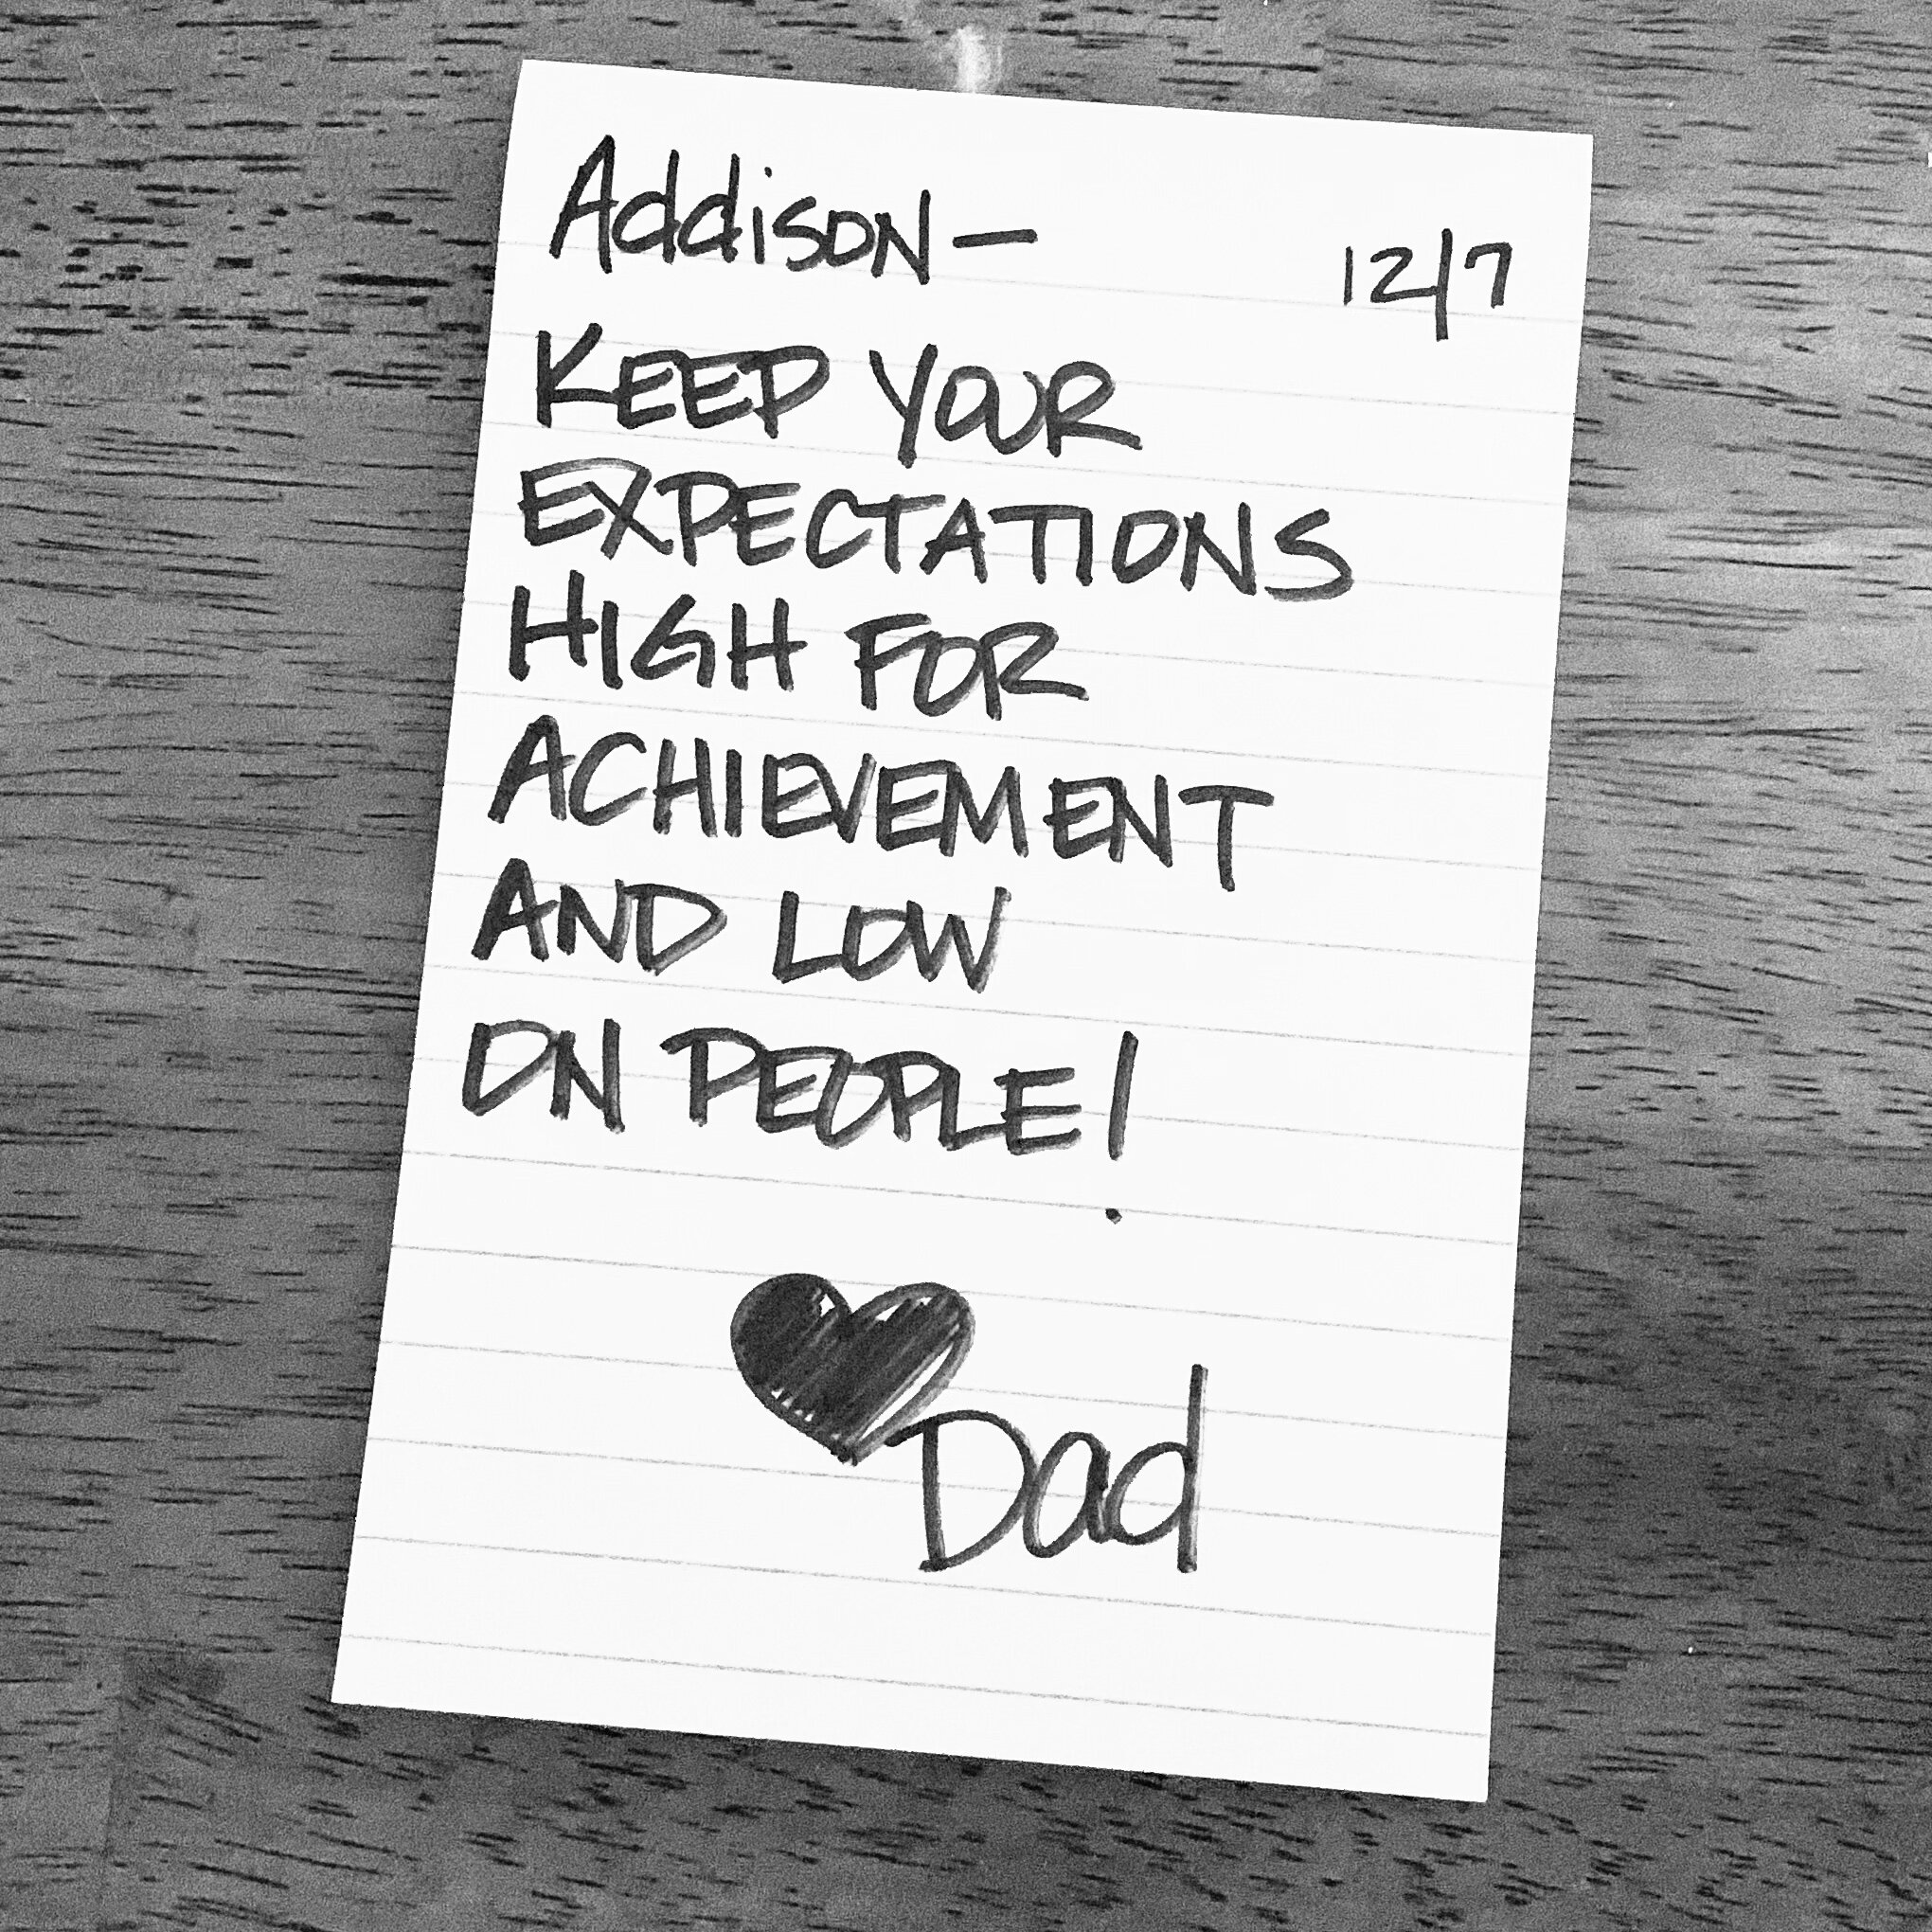 Addison— 12/7
KEEP YOUR
EXPECTATIONS
HIGH FOR
ACHIEVEMENT
AND LOW
ON PEOPLE!
Dad